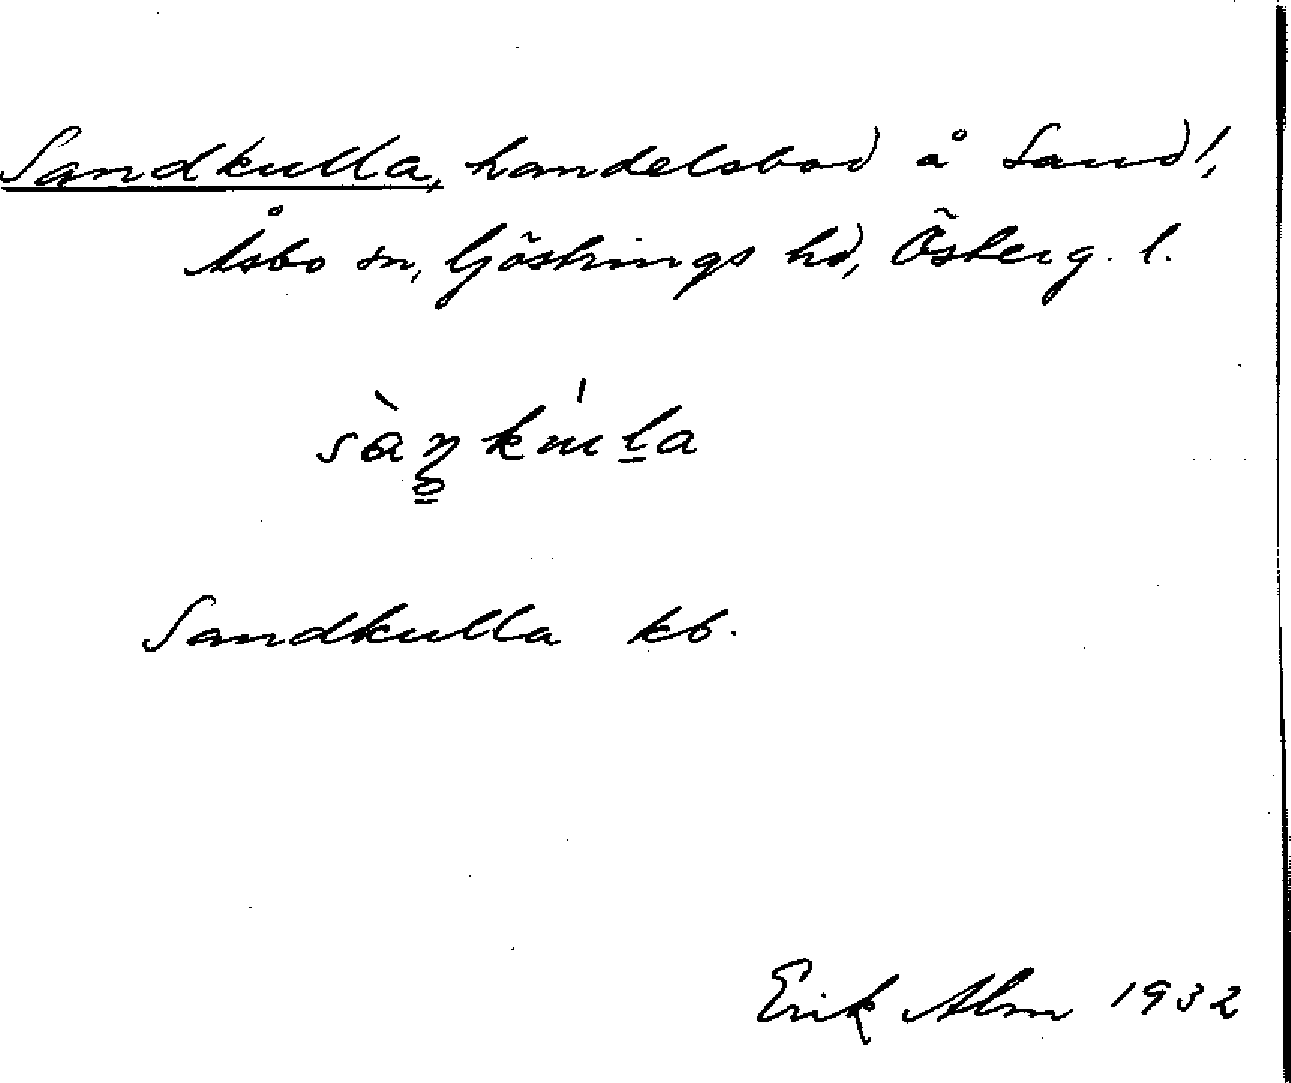 Sandkulla, handelsbod å Sand!,
Åsbo sn, Göstrings hd, Österg. l.
Sandkulla kb.
Erik Alm 1932